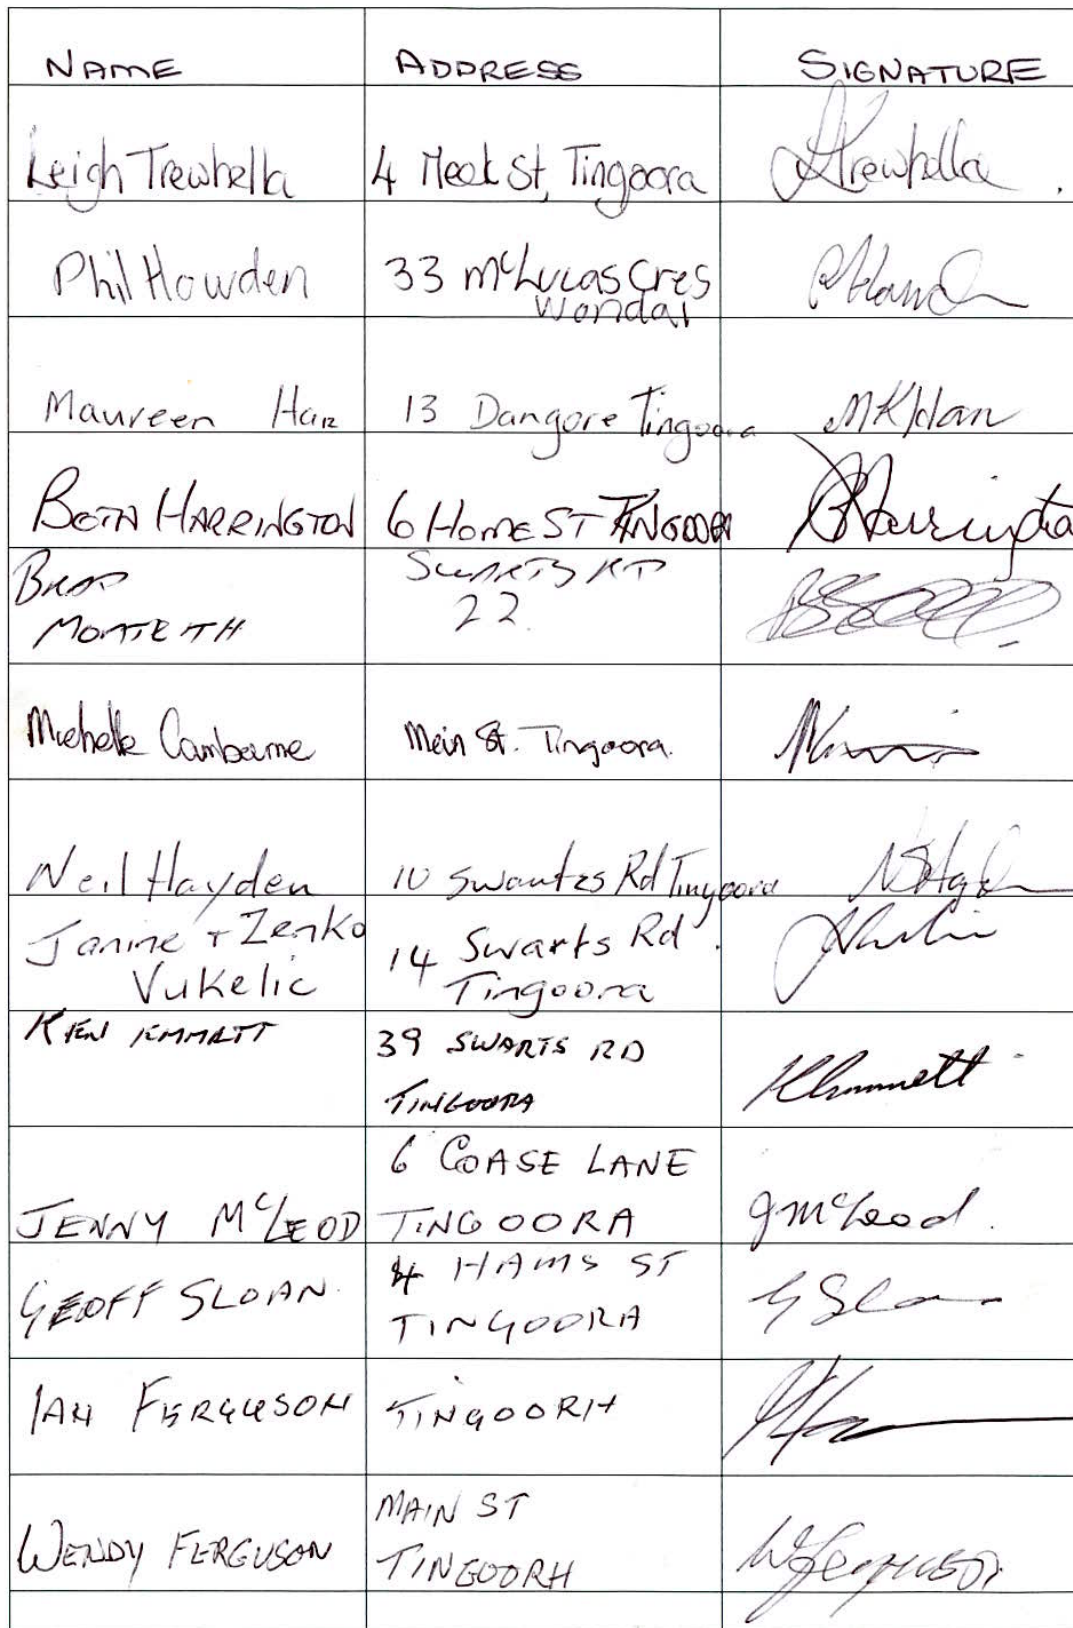 NAME ADDRESS SIGNATURE
Leigh Trewhella 4 Meek St, Tingoora LTrewhella
Phil Howden 33 McLucas Cres
Wondai
Maureen Han 13 Dangore Tingoora MKHan
BETH HARRINGTON 6 HOME ST TINGOORA BHarrington
BRAD SWARTS RD
MONTEITH 22.
Michelle Camborne Main St. Tingoora.
Neil Hayden 10 Swartzs Rd Tingoora
Janine + Zenko 14 Swarts Rd
Vukelic Tingoora
KEN EMMETT 39 SWARTS RD
TINGOORA KEmmett
6 COASE LANE
JENNY McLEOD TINGOORA JMcLeod.
GEOFF SLOAN. 4 HAMS ST
TINGOORA G Sloan
IAN FERGUSON TINGOORA
MAIN ST
WENDY FERGUSON TINGOORA WFerguson